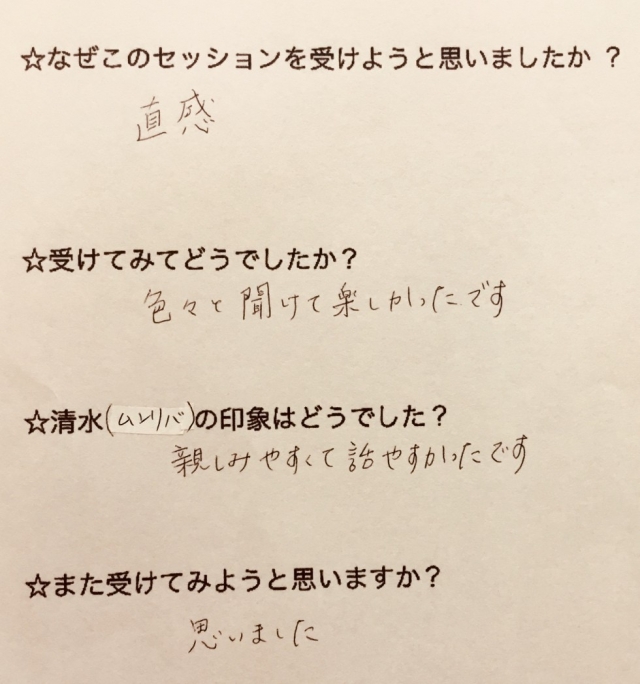 ☆なぜこのセッションを受けようと思いましたか ？
直感
☆受けてみてどうでしたか？
色々と聞けて楽しかったです
☆清水(ムンリバ)の印象はどうでした？
親しみやすくて話やすかったです
☆また受けてみようと思いますか？
思いました